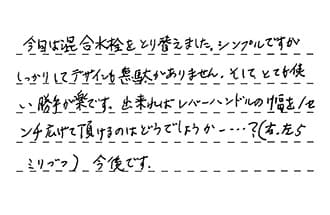 今日は混合水栓をとり替えました。シンプルですが
しっかりしてデザインも無駄がありません。そして、とても使
い勝手が楽です。出来ればレバーハンドルの幅を1セ
ンチ広げて頂けるのはどうでしょうか……?(右.左5
ミリづつ) 今後です.